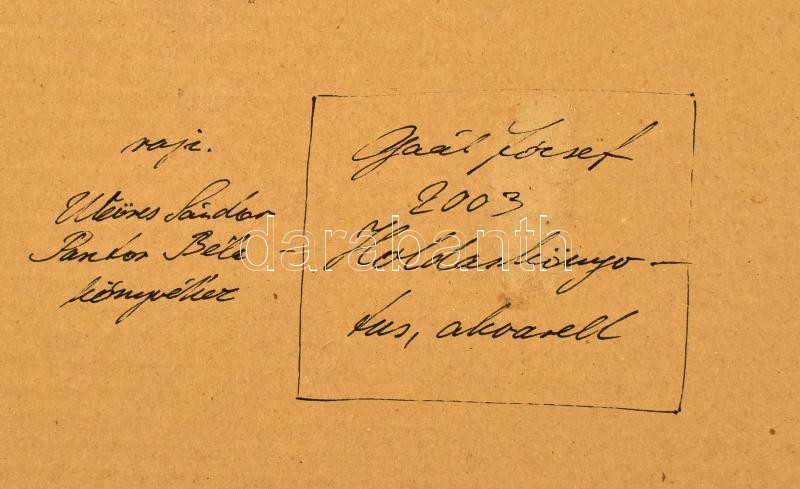 rajz.
Weöres Sándor
Pantor Béla
könyvéhez
Gaál József
2003
Holdaskönyv –
tus, akvarell
darabanth